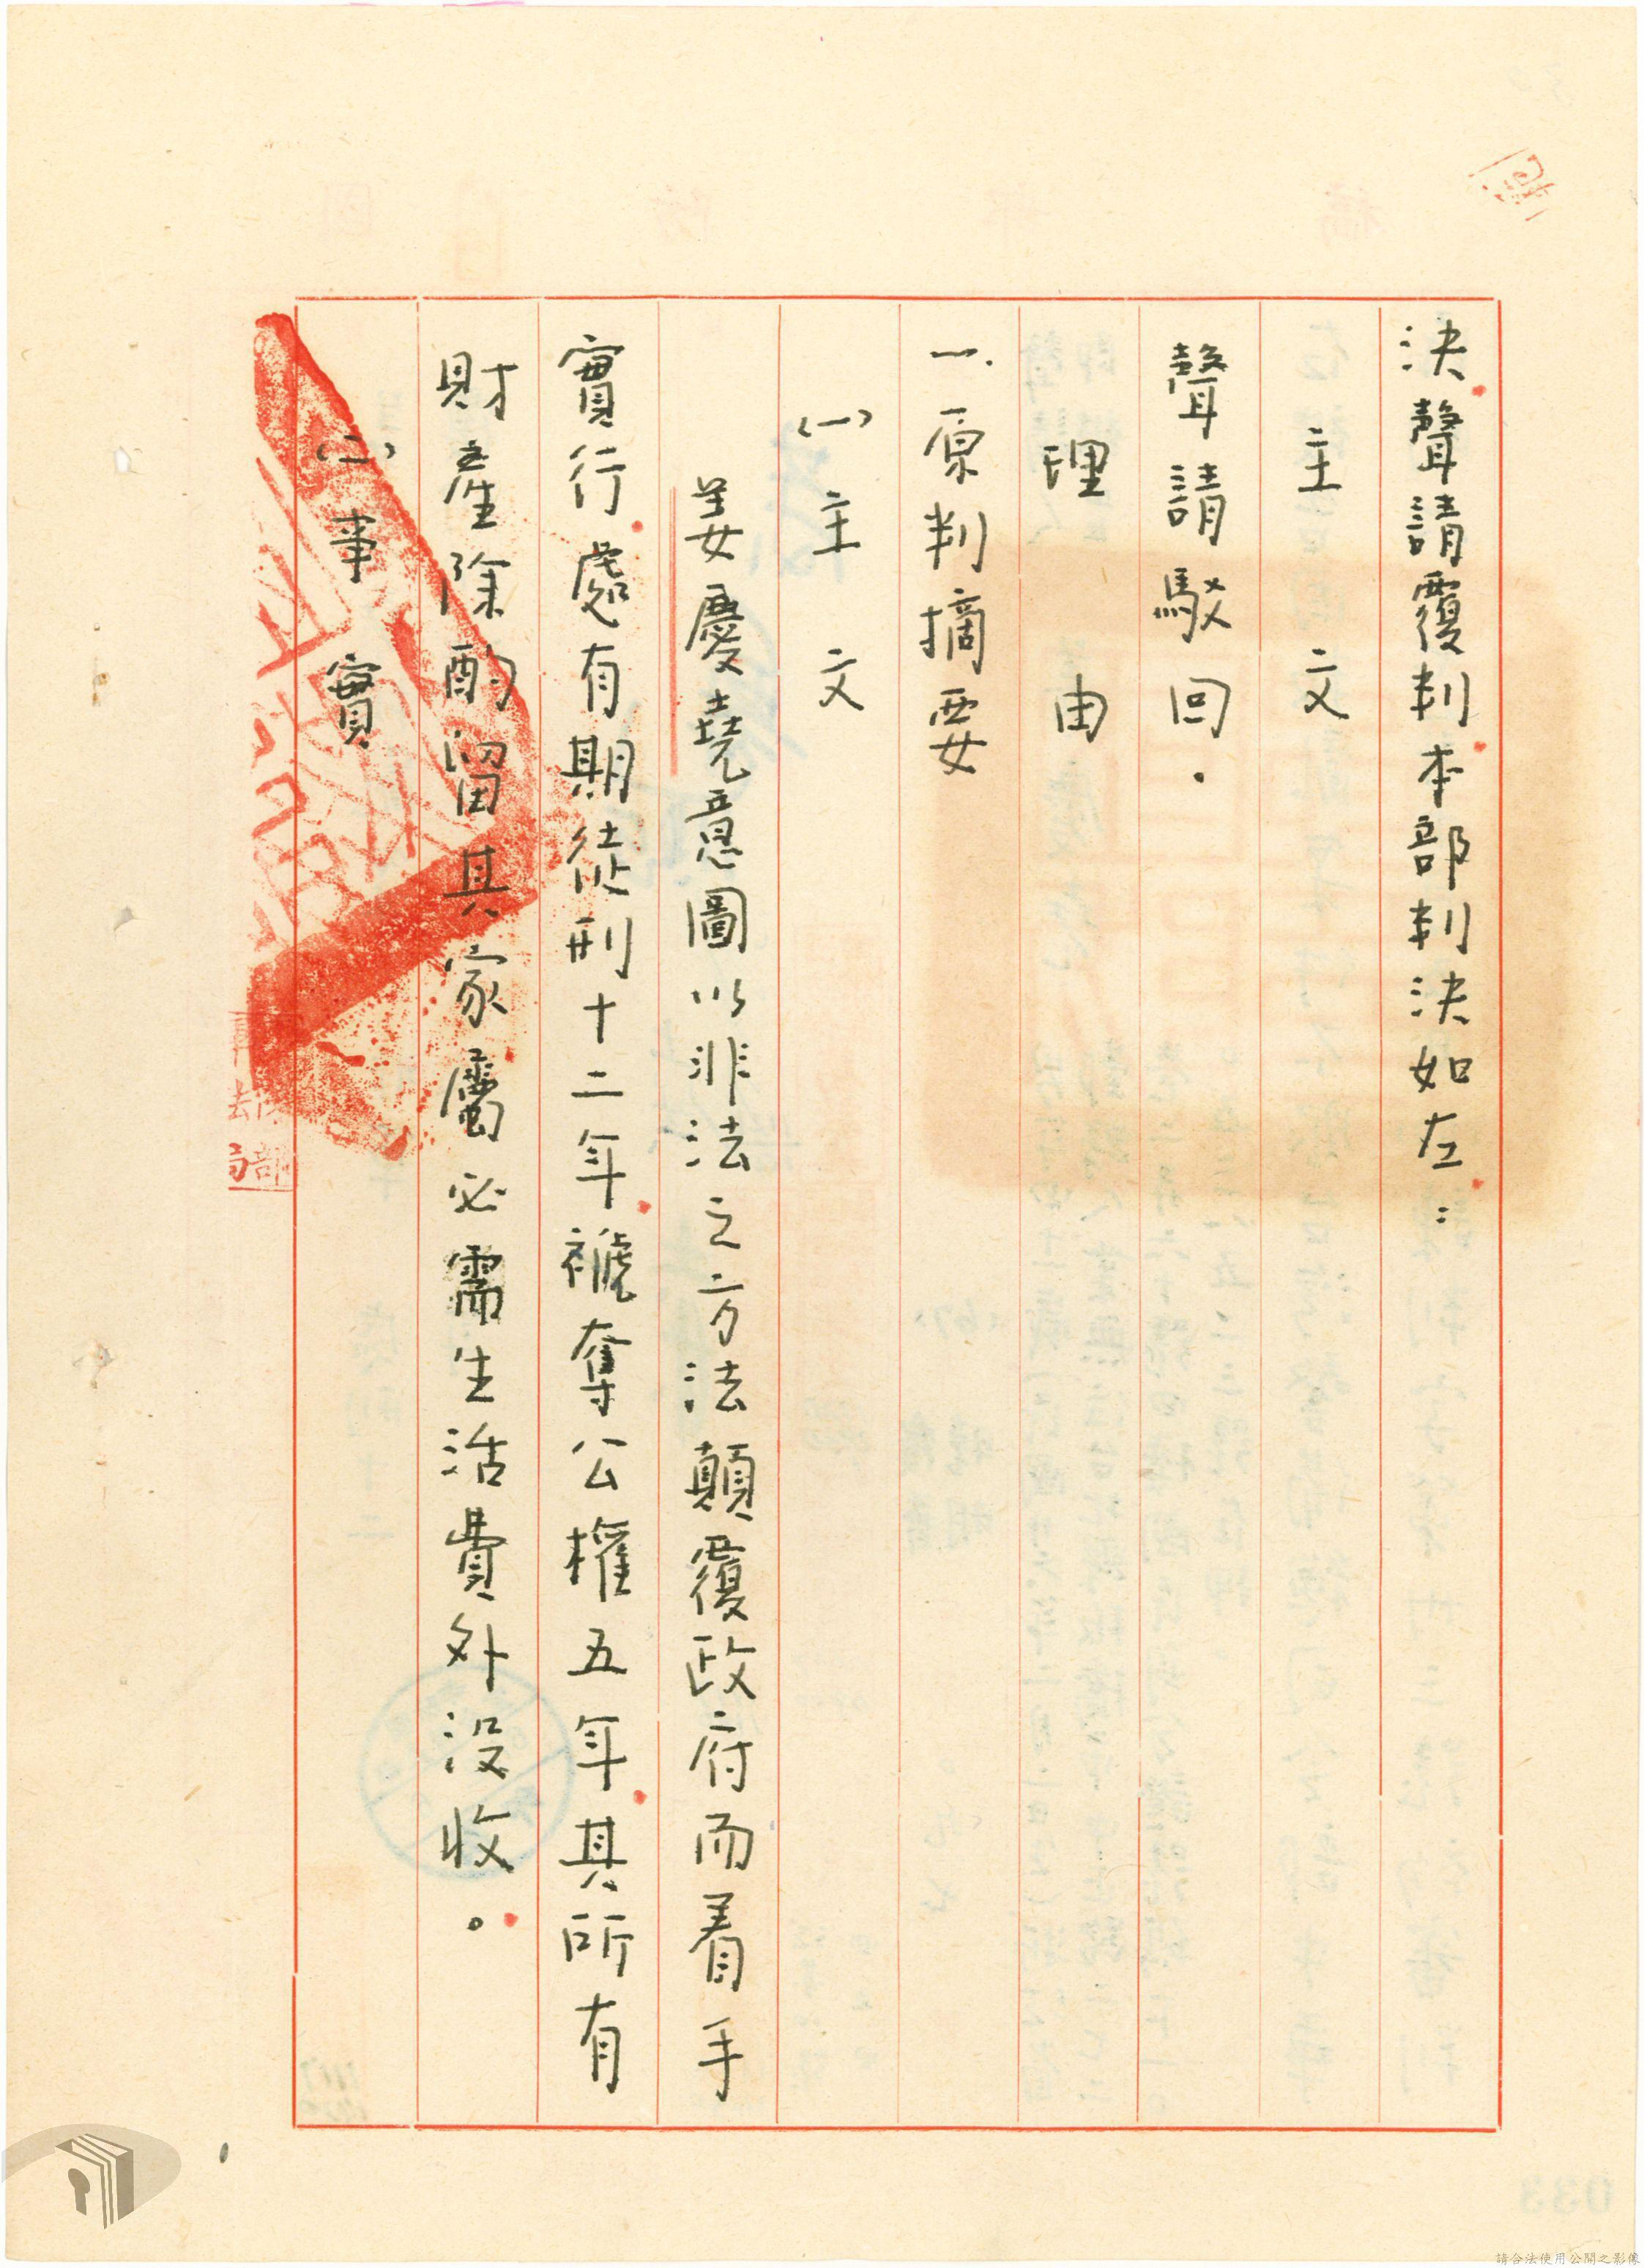 決聲請覆判本部判決如左：
主文
聲請駁回．
理由
一.原判摘要
(一)主文
姜慶堯意圖以非法之方法顛覆政府而着手
實行處有期徒刑十二年褫奪公權五年其所有
財產除酌留其家屬必需生活費外沒收。
(二)事實
請合法使用公開之影像